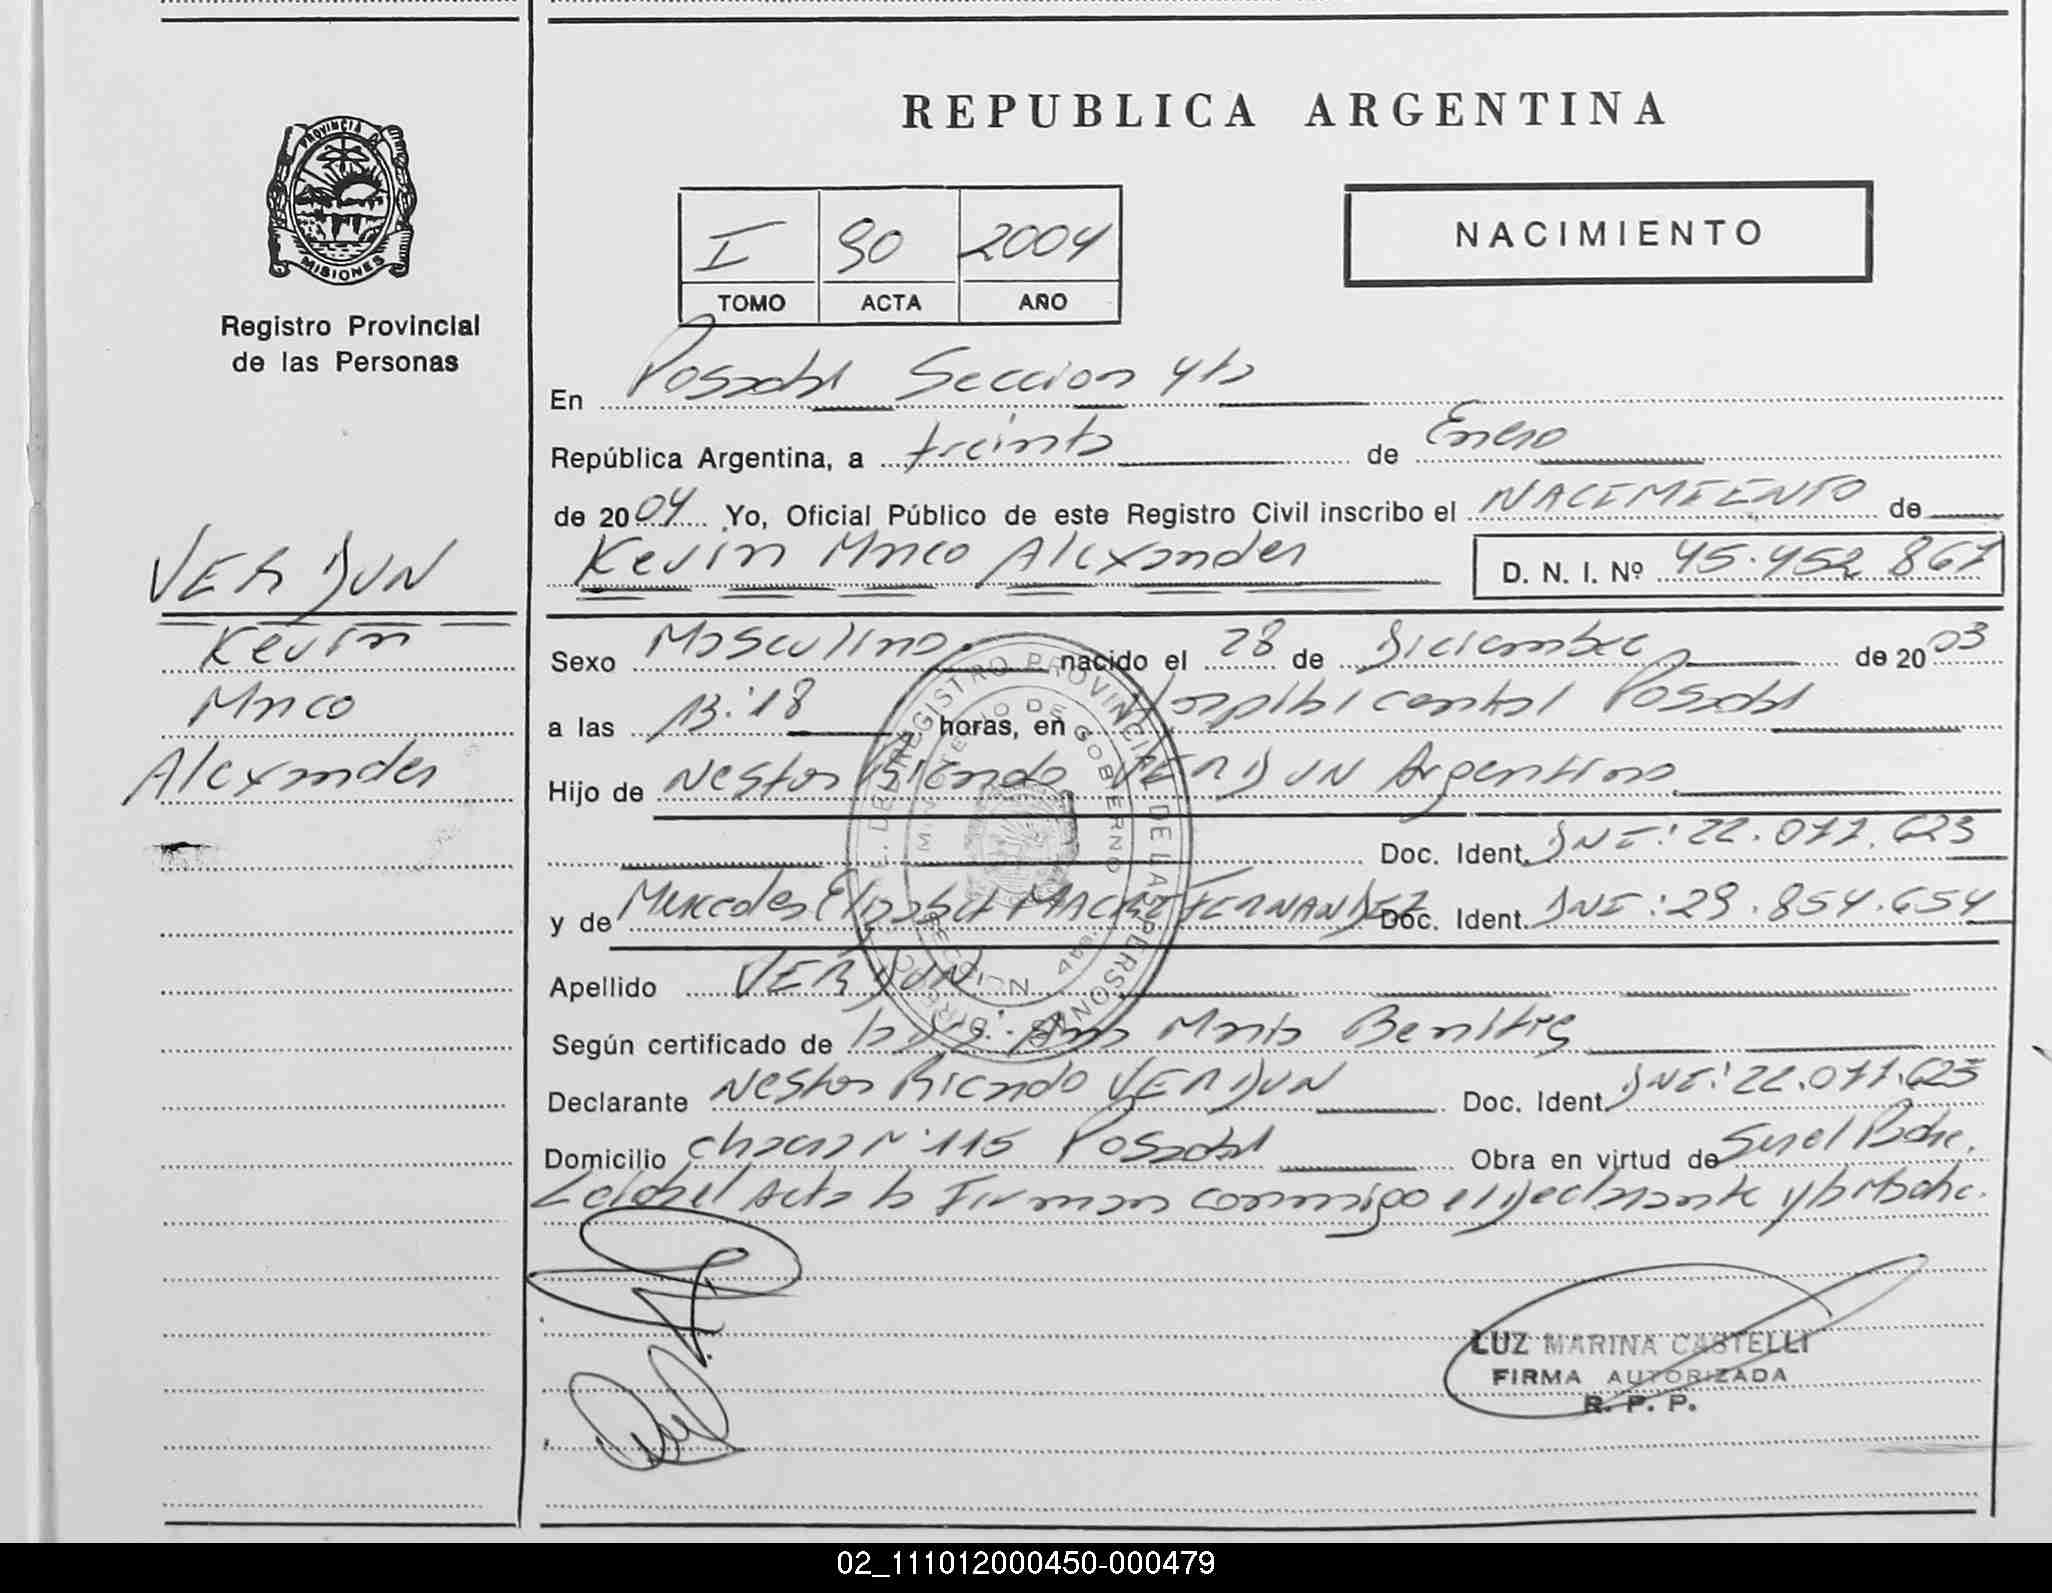 PROVINCIA DE
MISIONES
Registro Provincial
de las Personas
VERDUN
Kevin
Marco
Alexander
REPUBLICA ARGENTINA
I 90 2004
TOMO ACTA AÑO
NACIMIENTO
En Posadas Seccion 4ta
República Argentina, a treinta de Enero
de 2004 Yo, Oficial Público de este Registro Civil inscribo el NACIMIENTO de
Kevin Marco Alexander D. N. I. Nº 45.452.867
Sexo Masculino. nacido el 28 de Diciembre de 2003
a las 13:18 horas, en Hospital central Posadas
Hijo de Nestor Ricardo VERDUN Argentino
Doc. Ident. DNI: 22.077.623
y de Mercedes Elizabet FERNANDEZ Doc. Ident. DNI: 29.854.654
Apellido VERDUN
Según certificado de la Ana Maria Benitez
Declarante Nestor Ricardo VERDUN Doc. Ident. DNI: 22.077.623
Domicilio chacra Nº 115 Posadas Obra en virtud de Ser el Padre.
Leida el Acta la Firman conmigo el Declarante y la Madre.
DIREC. DEL REGISTRO PROVINCIAL DE LAS PERSONAS
MINISTERIO DE GOBIERNO
LUZ MARINA CASTELLI
FIRMA AUTORIZADA
R. P. P.
02_111012000450-000479